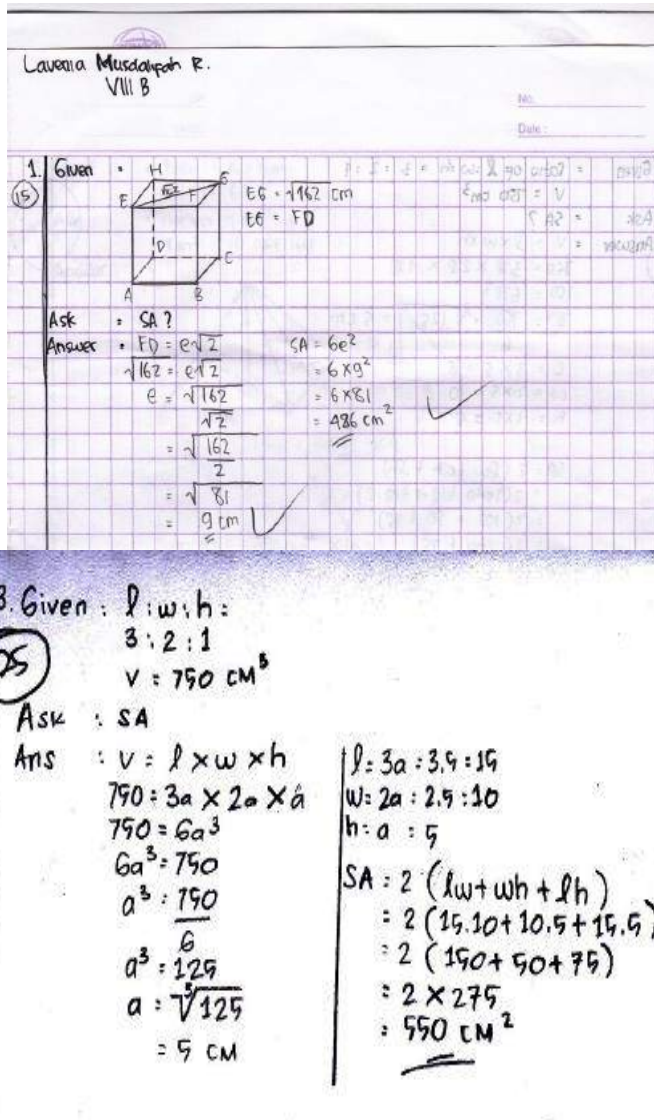 Lavenia Musdalifah R.
VIII B
No.
Date:
1. Given :
15
H
G
E
F
D
C
A
B
EG = √162 cm
EG = FD
Ask : SA ?
Answer : FD = e√2
√162 = e√2
e = √162
√2
= √162
2
= √81
= 9 cm
SA = 6e²
= 6 × 9²
= 6 × 81
= 486 cm²
3. Given : l : w : h :
3 : 2 : 1
V : 750 CM³
Ask : SA
Ans : V = l × w × h
750 = 3a × 2a × a
750 = 6a³
6a³ = 750
a³ : 750
6
a³ = 125
a : ∛125
= 5 CM
l = 3a : 3.5 : 15
w = 2a : 2.5 : 10
h : a : 5
SA : 2 (lw + wh + lh)
= 2 (15.10 + 10.5 + 15.5)
= 2 (150 + 50 + 75)
= 2 × 275
= 550 CM²